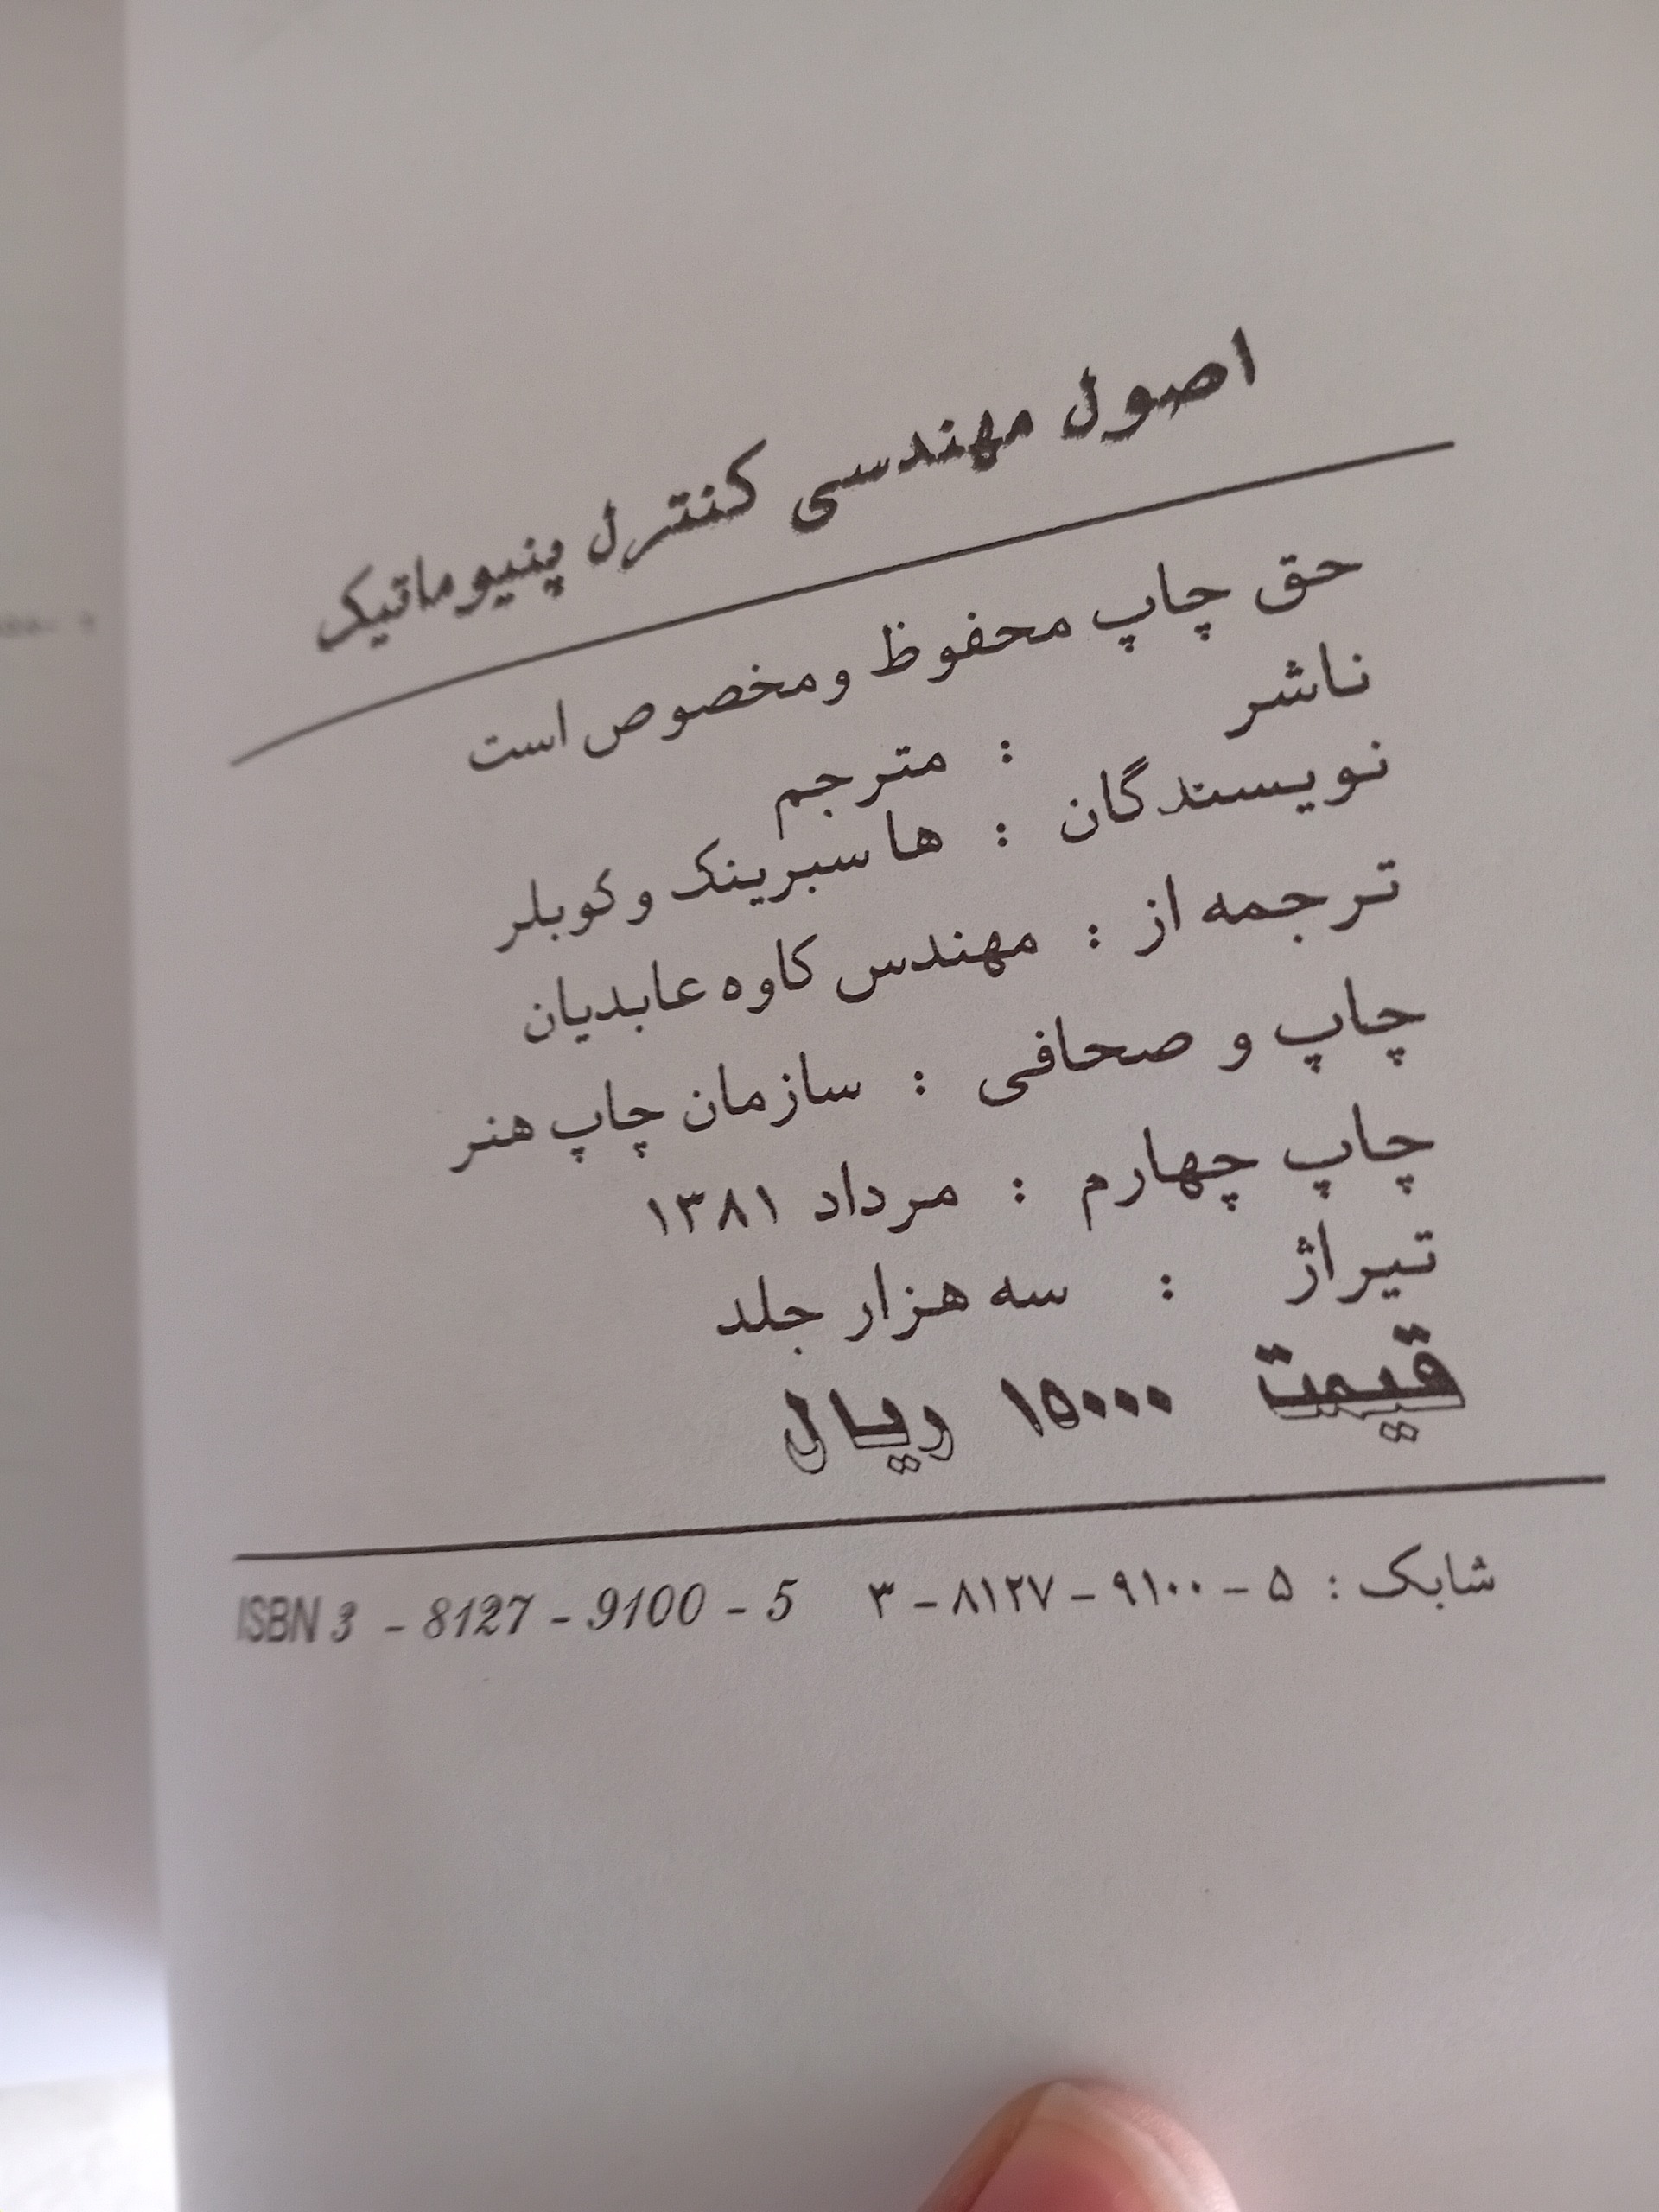 اصول مهندسی کنترل پنیوماتیک
حق چاپ محفوظ ومخصوص است
ناشر : مترجم
نویسندگان : هاسبرینک وکوبلر
ترجمه از : مهندس کاوه عابدیان
چاپ و صحافی : سازمان چاپ هنر
چاپ چهارم : مرداد ۱۳۸۱
تیراژ : سه هزار جلد
قیمت ۱۵۰۰۰ ریال
شابک : ۵ – ۹۱۰۰ – ۸۱۲۷ – ۳ ISBN 3 - 8127 - 9100 - 5